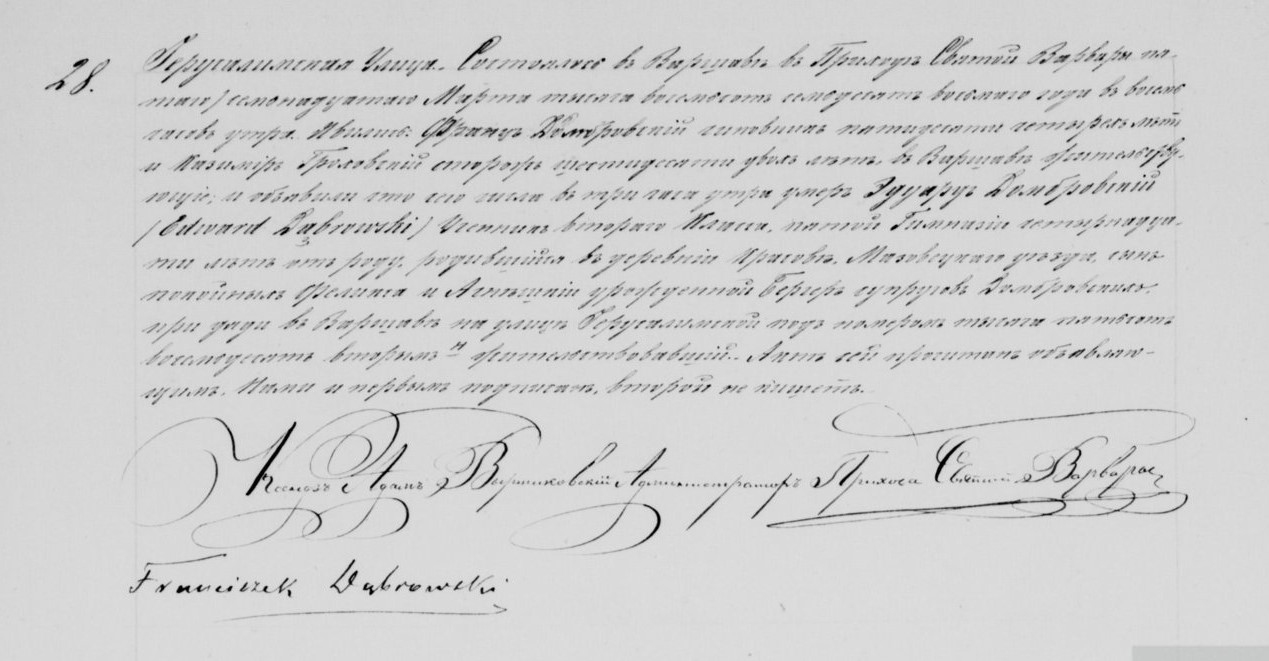 28.
Іерусалимская Улица. Состоялось въ Варшавѣ въ Приходѣ Святой Варвары пя-
таго) семнадцатаго Марта тысяча восемьсотъ семдесятъ восьмаго года въ восемь
часовъ утра. Явились: Францъ Домбровскій чиновникъ пятидесяти четырехъ лѣтъ
и Казимѣръ сторожъ шестидесяти двохъ лѣтъ, въ Варшавѣ жительству-
ющіе; и объявили что сего числа въ три часа утра умеръ Эдуардъ Домбровскій
(Edward Dąbrowski) Ученикъ втораго Класса, пятой Гимназіи четырнадца-
ти лѣтъ отъ роду, родившійся въ деревнѣ Мазовецкаго уѣзда, сынъ
покойныхъ Феликса и урожденной Бергеръ супруговъ Домбровскихъ,
при дяди въ Варшавѣ на улицѣ Іерусалимской подъ номеромъ тысяча пятьсотъ
восемдесятъ вторымъ жительствовавшій. Актъ сей прочитанъ объявляю-
щимъ, Нами и первымъ подписанъ, второй не пишетъ.
Ксендзъ Адамъ Администраторъ Прихода Святой Варвары
Franciszek Dąbrowski